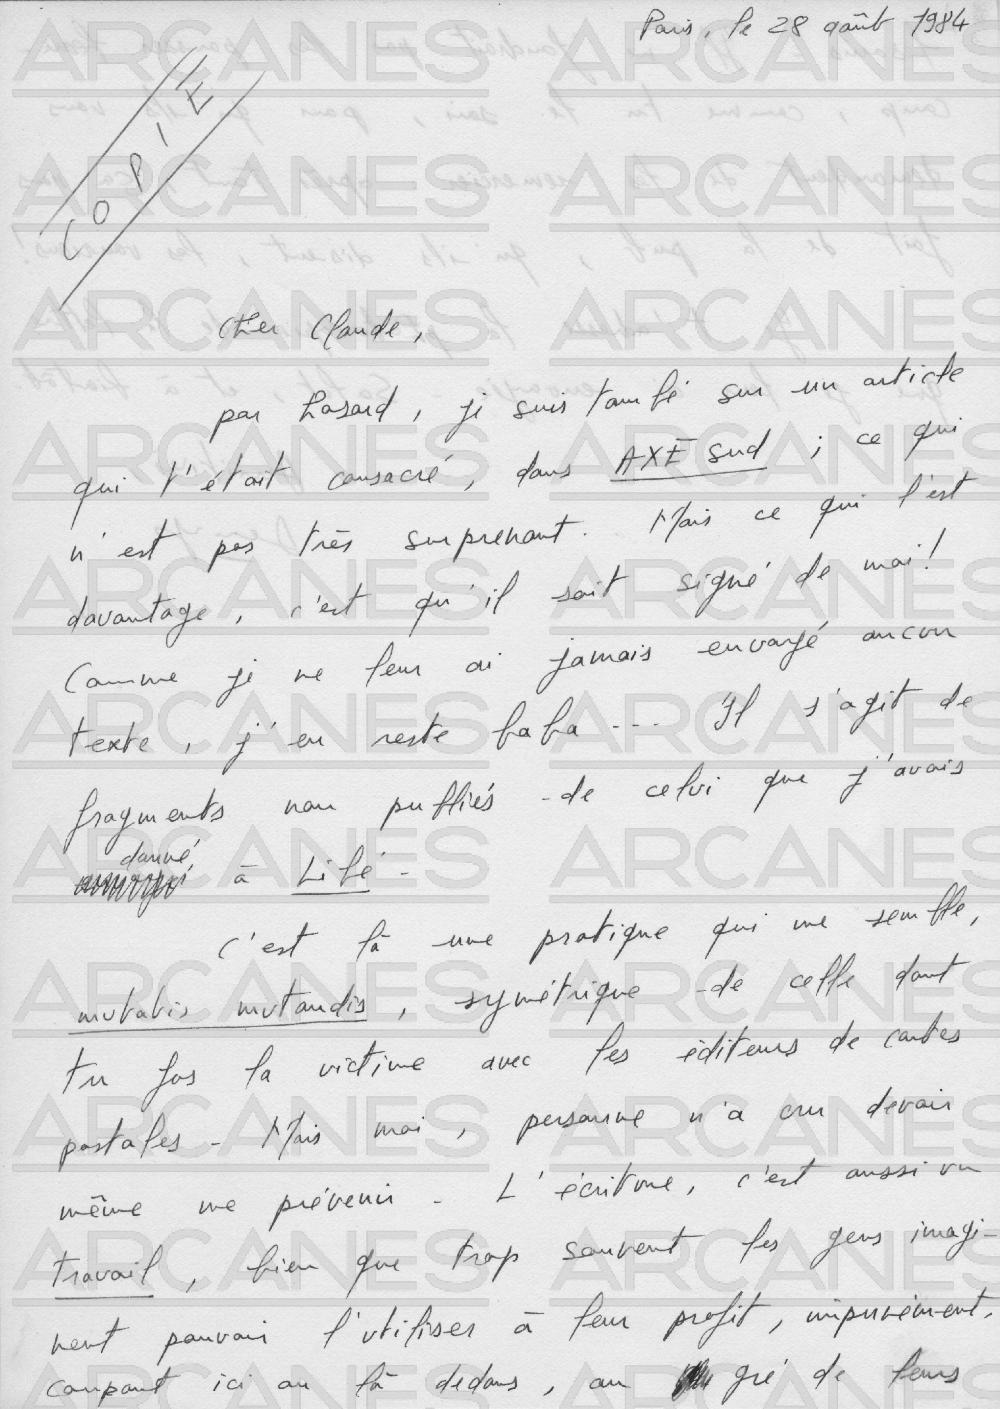 Paris, le 28 août 1984
COPIE
Cher Claude,
par hasard, je suis tombé sur un article
qui t'était consacré, dans AXE Sud ; ce qui
n'est pas très surprenant. Mais ce qui l'est
davantage, c'est qu'il soit signé de moi!
Comme je ne leur ai jamais envoyé aucun
texte, j'en reste baba --- Il s'agit de
fragments non publiés de celui que j'avais
donné à Libé.
C'est là une pratique qui me semble,
mutatis mutandis, symétrique de celle dont
tu fus la victime avec les éditeurs de cartes
postales. Mais moi, personne n'a cru devoir
même me prévenir. L'écriture, c'est aussi un
travail, bien que trop souvent les gens imagi-
nent pouvoir l'utiliser à leur profit, impunément,
coupant ici ou là dedans, au gré de leurs
ARCANES